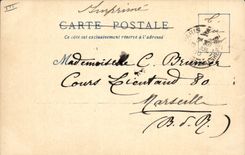 Imprimé
CARTE POSTALE
Ce côté est exclusivement réservé à l'adresse
Mademoiselle C. Brunier
Cours Lieutaud 80
Marseille
(B.d.R.)